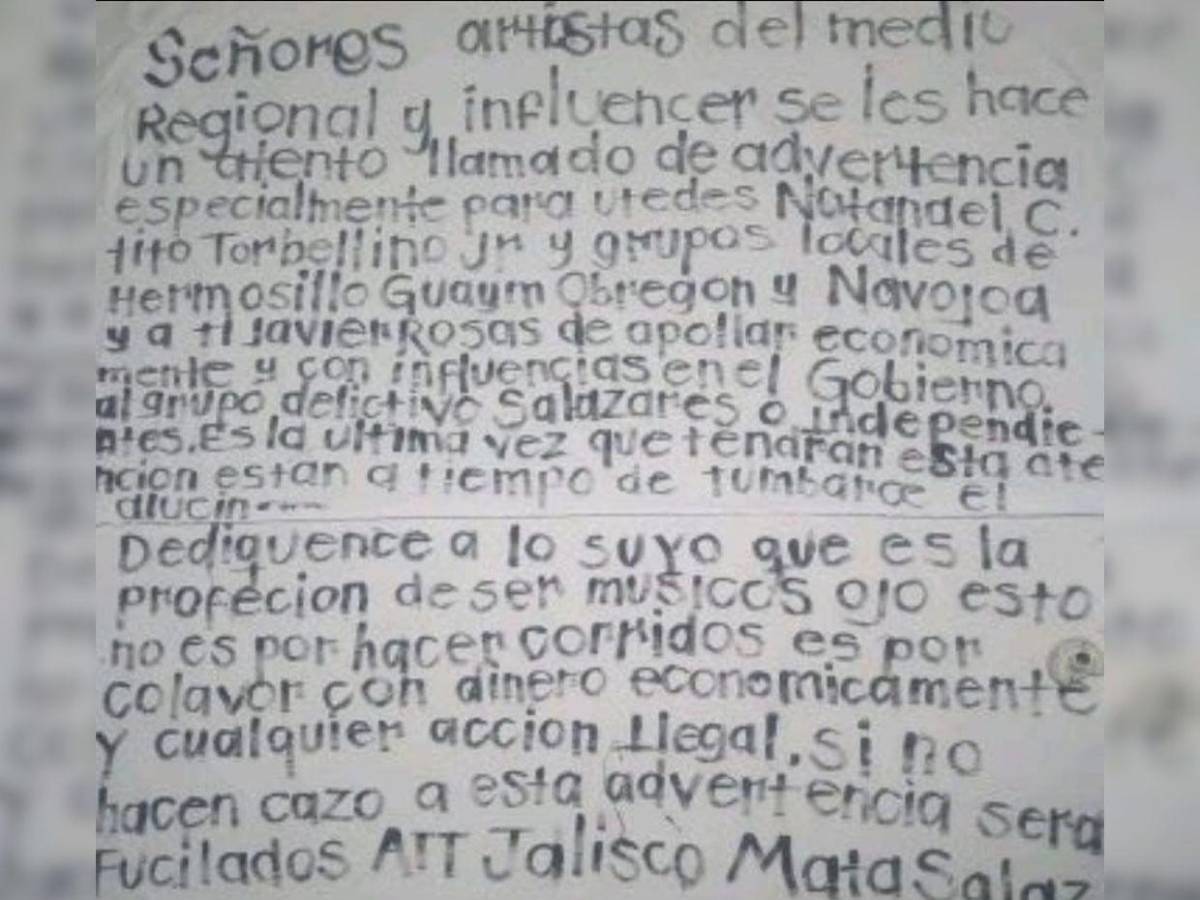 Señores artistas del medio
Regional y influencer se les hace
un atiento llamado de advertencia
especialmente para utedes Natanael C.
tito Torbellino Jr y grupos locales de
Hermosillo Guaym Obregon y Navojoa
y a ti Javier Rosas de apollar economica
mente y con influencias en el Gobierno
al grupo delictivo Salazares o independie-
ntes. Es la ultima vez que tendran esta ate
ncion estan a tiempo de tumbarce el
alucin----
Dediquence a lo suyo que es la
profecion de ser musicos ojo esto
no es por hacer corridos es por
colavor con dinero economicamente
y cualquier accion Ilegal. si no
hacen cazo a esta advertencia sera
Fucilados ATT Jalisco Mata Salaz